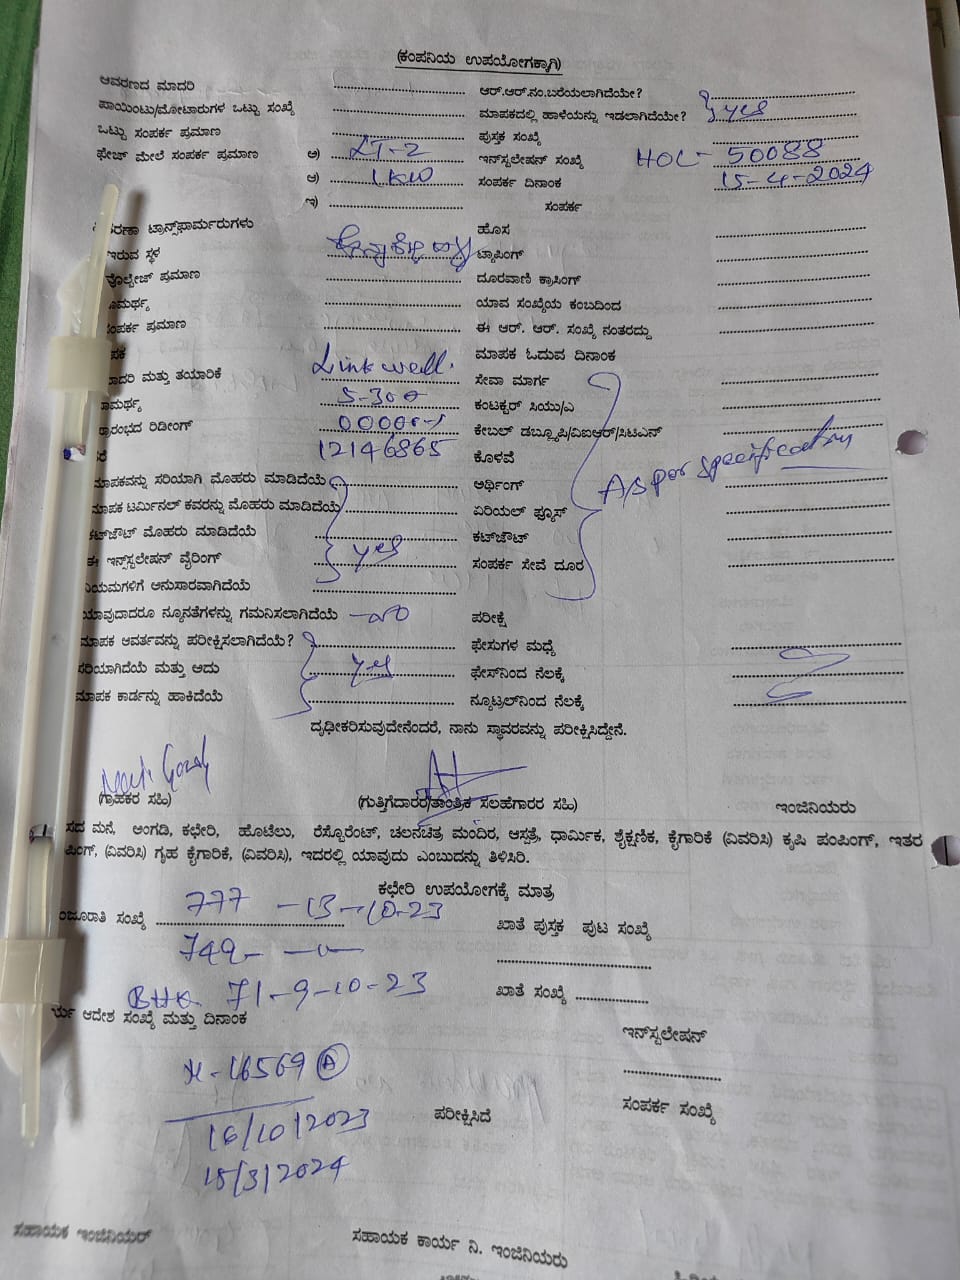 (ಕಂಪನಿಯ ಉಪಯೋಗಕ್ಕಾಗಿ)
ಆವರಣದ ಮಾದರಿ ಆರ್.ಆರ್.ನಂ.ಬರೆಯಲಾಗಿದೆಯೇ?
ಪಾಯಿಂಟು/ಮೋಟಾರುಗಳ ಒಟ್ಟು ಸಂಖ್ಯೆ ಮಾಪಕದಲ್ಲಿ ಹಾಳೆಯನ್ನು ಇಡಲಾಗಿದೆಯೇ? yes
ಒಟ್ಟು ಸಂಪರ್ಕ ಪ್ರಮಾಣ ಪುಸ್ತಕ ಸಂಖ್ಯೆ
ಫೇಜ್ ಮೇಲೆ ಸಂಪರ್ಕ ಪ್ರಮಾಣ ಅ) LT-2 ಇನ್‌ಸ್ಟಲೇಷನ್ ಸಂಖ್ಯೆ HOL- 50088
ಆ) 1KW ಸಂಪರ್ಕ ದಿನಾಂಕ 15-4-2024
ಇ) ಸಂಪರ್ಕ
ಟ್ರಾನ್ಸ್‌ಫಾರ್ಮರುಗಳು ಹೊಸ
ಇರುವ ಸ್ಥಳ ಟ್ಯಾಪಿಂಗ್
ವೋಲ್ಟೇಜ್ ಪ್ರಮಾಣ ದೂರವಾಣಿ ಕ್ರಾಸಿಂಗ್
ಾಮರ್ಥ್ಯ ಯಾವ ಸಂಖ್ಯೆಯ ಕಂಬದಿಂದ
ಸಂಪರ್ಕ ಪ್ರಮಾಣ ಈ ಆರ್. ಆರ್. ಸಂಖ್ಯೆ ನಂತರದ್ದು
ಪಕ ಮಾಪಕ ಓದುವ ದಿನಾಂಕ
ಾದರಿ ಮತ್ತು ತಯಾರಿಕೆ Link well. ಸೇವಾ ಮಾರ್ಗ
ಾಮರ್ಥ್ಯ 5-30 ಕಂಟಕ್ಟರ್ ಸಿಯು/ಎ
ರಾರಂಭದ ರಿಡೀಂಗ್ ಕೇಬಲ್ ಡಬ್ಲ್ಯೂಪಿ/ವಿಐಆರ್/ಸಿಟಿಎನ್
ರೆ 12146865 ಕೊಳವೆ
ಮಾಪಕವನ್ನು ಸರಿಯಾಗಿ ಮೊಹರು ಮಾಡಿದೆಯೆ ಆರ್ಥಿಂಗ್ As per specification
ಮಾಪಕ ಟರ್ಮಿನಲ್ ಕವರನ್ನು ಮೊಹರು ಮಾಡಿದೆಯೆ ಏರಿಯಲ್ ಫ್ಯೂಸ್
ಕಟ್‌ಔಟ್ ಮೊಹರು ಮಾಡಿದೆಯೆ ಕಟ್‌ಔಟ್
ಈ ಇನ್‌ಸ್ಟಲೇಷನ್ ವೈರಿಂಗ್ yes ಸಂಪರ್ಕ ಸೇವೆ ದೂರ
ನಿಯಮಗಳಿಗೆ ಅನುಸಾರವಾಗಿದೆಯೆ
ಯಾವುದಾದರೂ ನ್ಯೂನತೆಗಳನ್ನು ಗಮನಿಸಲಾಗಿದೆಯೆ no ಪರೀಕ್ಷೆ
ಮಾಪಕ ಆವರ್ತವನ್ನು ಪರೀಕ್ಷಿಸಲಾಗಿದೆಯೆ? ಫೇಸುಗಳ ಮಧ್ಯೆ
ಸರಿಯಾಗಿದೆಯೆ ಮತ್ತು ಅದು yes ಫೇಸ್‌ನಿಂದ ನೆಲಕ್ಕೆ
ಮಾಪಕ ಕಾರ್ಡನ್ನು ಹಾಕಿದೆಯೆ ನ್ಯೂಟ್ರಲ್‌ನಿಂದ ನೆಲಕ್ಕೆ
ದೃಢೀಕರಿಸುವುದೇನೆಂದರೆ, ನಾನು ಸ್ಥಾವರವನ್ನು ಪರೀಕ್ಷಿಸಿದ್ದೇನೆ.
(ಗ್ರಾಹಕರ ಸಹಿ) (ಗುತ್ತಿಗೆದಾರರ/ತಾಂತ್ರಿಕ ಸಲಹೆಗಾರರ ಸಹಿ) ಇಂಜಿನಿಯರು
ಸದ ಮನೆ, ಅಂಗಡಿ, ಕಛೇರಿ, ಹೊಟೆಲು, ರೆಸ್ಟೊರೆಂಟ್, ಚಲನಚಿತ್ರ ಮಂದಿರ, ಆಸ್ಪತ್ರೆ, ಧಾರ್ಮಿಕ, ಶೈಕ್ಷಣಿಕ, ಕೈಗಾರಿಕೆ (ವಿವರಿಸಿ) ಕೃಷಿ ಪಂಪಿಂಗ್, ಇತರ
ಪಿಂಗ್, (ವಿವರಿಸಿ) ಗೃಹ ಕೈಗಾರಿಕೆ, (ವಿವರಿಸಿ), ಇದರಲ್ಲಿ ಯಾವುದು ಎಂಬುದನ್ನು ತಿಳಿಸಿರಿ.
ಕಛೇರಿ ಉಪಯೋಗಕ್ಕೆ ಮಾತ್ರ
ಂಜೂರಾತಿ ಸಂಖ್ಯೆ 777 -13-10-23 ಖಾತೆ ಪುಸ್ತಕ ಪುಟ ಸಂಖ್ಯೆ
749- -"-
71-9-10-23 ಖಾತೆ ಸಂಖ್ಯೆ
ರ್ಯ ಆದೇಶ ಸಂಖ್ಯೆ ಮತ್ತು ದಿನಾಂಕ ಇನ್‌ಸ್ಟಲೇಷನ್
16569 A
ಪರೀಕ್ಷಿಸಿದೆ ಸಂಪರ್ಕ ಸಂಖ್ಯೆ
16/10/2023
15/3/2024
ಸಹಾಯಕ ಇಂಜಿನಿಯರ್ ಸಹಾಯಕ ಕಾರ್ಯ ನಿ. ಇಂಜಿನಿಯರು